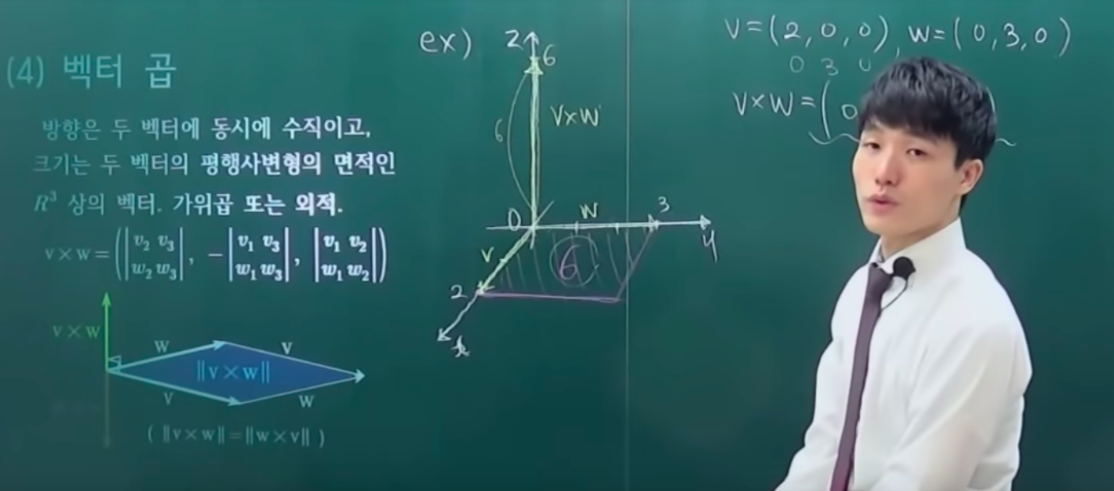 (4) 벡터 곱
방향은 두 벡터에 동시에 수직이고,
크기는 두 벡터의 평행사변형의 면적인
R³ 상의 벡터. 가위곱 또는 외적.
v×w=(|v₂ v₃ w₂ w₃|, -|v₁ v₃ w₁ w₃|, |v₁ v₂ w₁ w₂|)
v×w
w
v
‖v×w‖
v
w
( ‖v×w‖=‖w×v‖ )
ex)
z
6
6
v×w
0
w
3
y
v
6
2
x
v=(2, 0, 0), w=(0, 3, 0)
0 3 0
v×w=(0